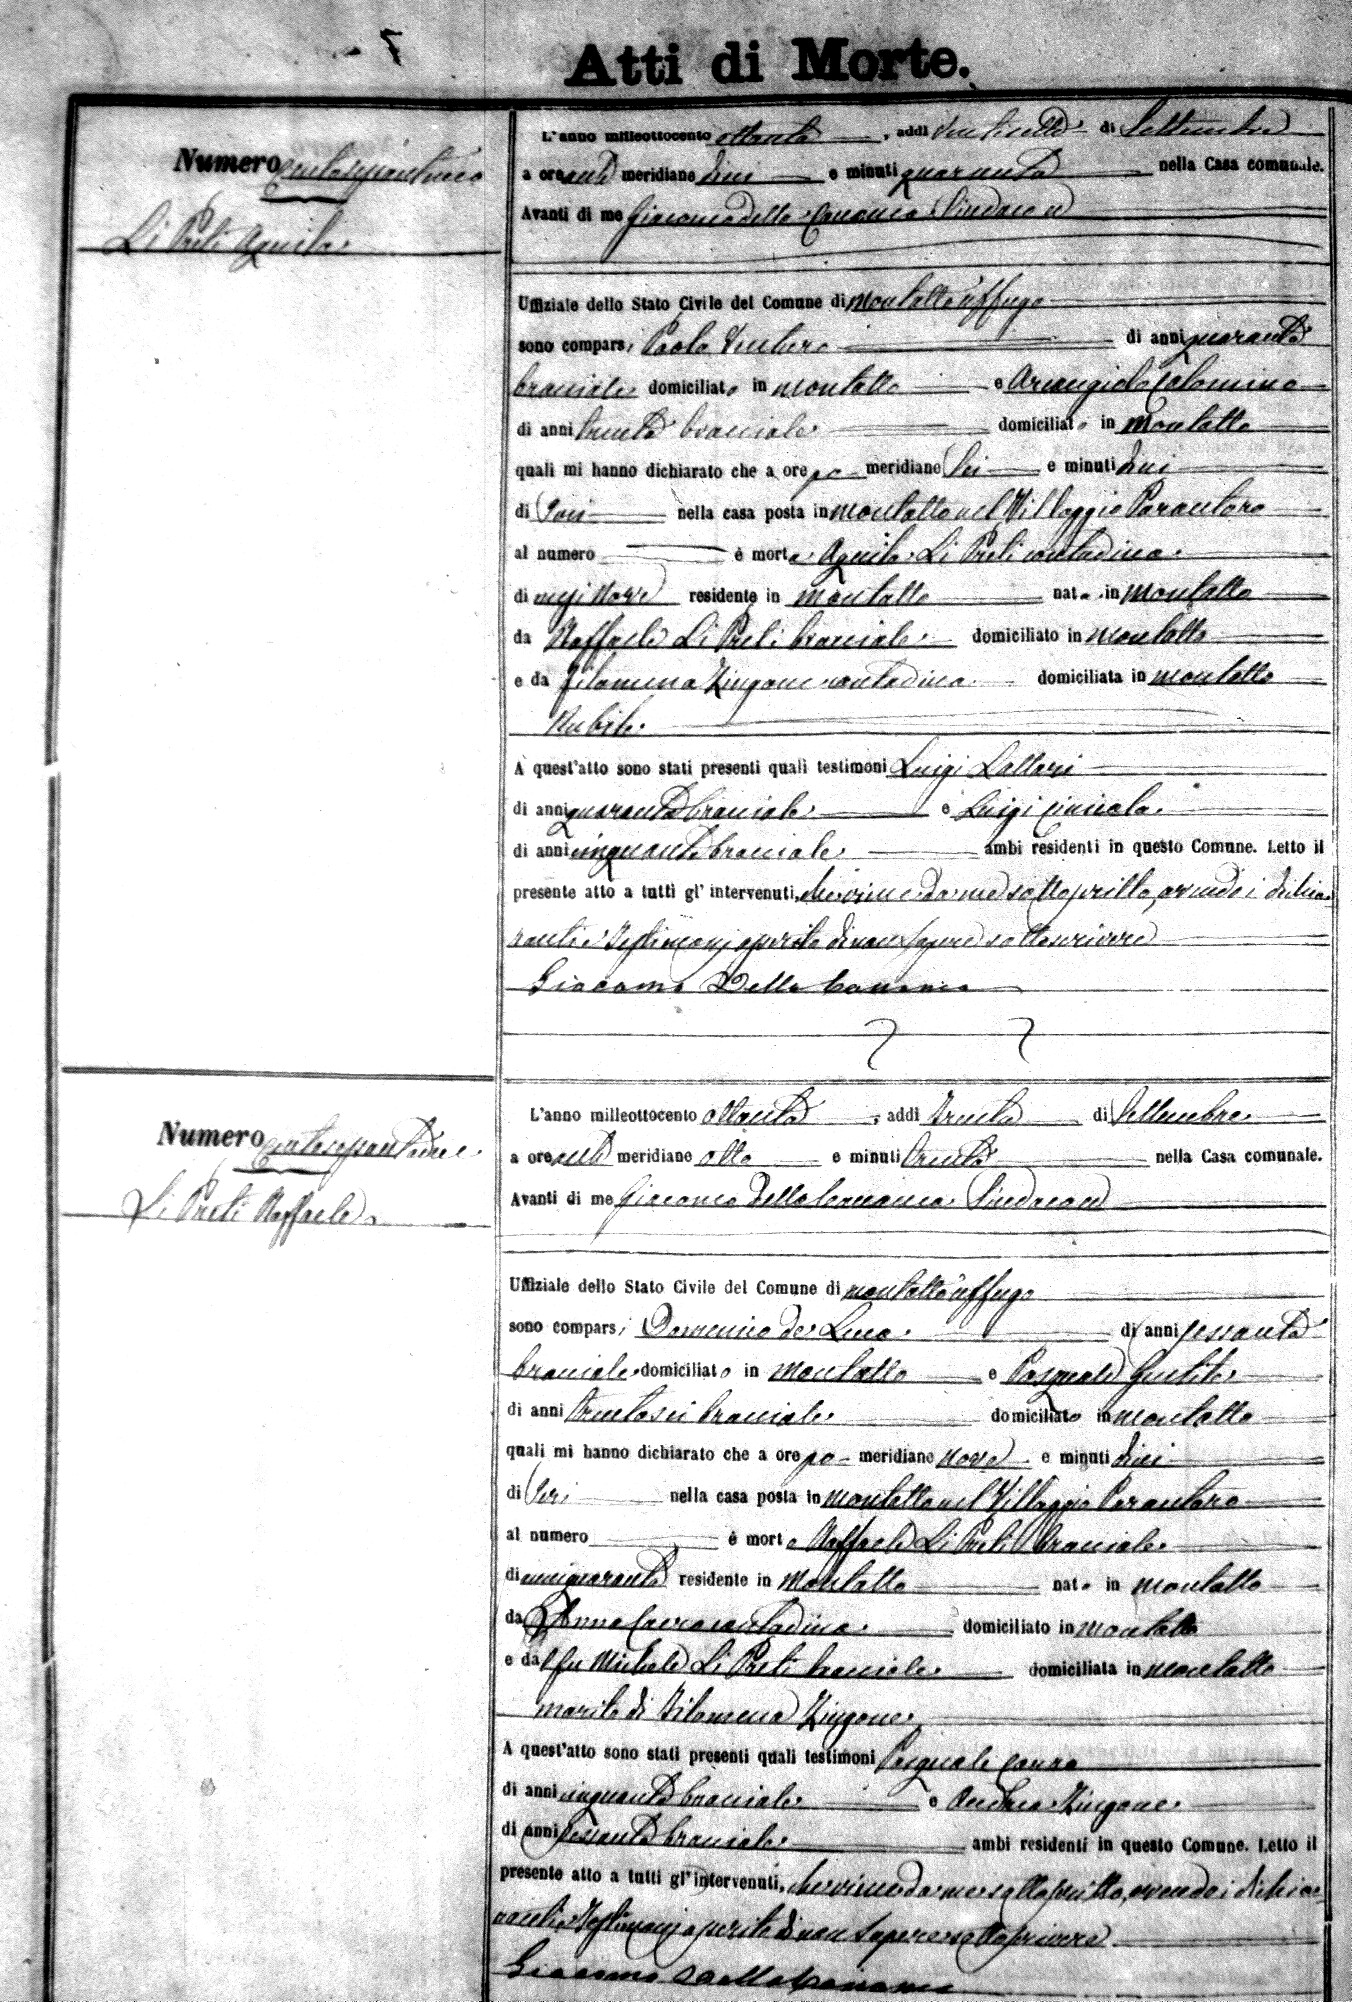 7
Atti di Morte.
Numero
Li Preti Aquila
L'anno milleottocento ottanta, addì ventisette di Settembre
a ore anti meridiane dieci e minuti quaranta nella Casa comunale.
Avanti di me Giacomo della Cananea Sindaco ed
Uffiziale dello Stato Civile del Comune di Montalto Uffugo
sono comparsi Paolo di anni quaranta
bracciale domiciliato in Montalto e Arcangiolo Calomino
di anni trenta bracciale domiciliato in Montalto
quali mi hanno dichiarato che a ore po meridiane sei e minuti dieci
di Ieri nella casa posta in Montalto nel Villaggio Parantoro
al numero è morta Aquila Li Preti contadina
di anni nove residente in Montalto nata in Montalto
da Raffaele Li Preti bracciale domiciliato in Montalto
e da Filomena Zingone contadina domiciliata in Montalto
Nubile.
A quest'atto sono stati presenti quali testimoni Luigi Lattari
di anni quaranta bracciale e Luigi
di anni cinquanta bracciale ambi residenti in questo Comune. Letto il
presente atto a tutti gl' intervenuti, che viene da me sottoscritto, avendo i dichia
ranti e testimonj asserito di non sapere sottoscrivere
Giacomo Della Cananea
Numero
Li Preti Raffaele
L'anno milleottocento ottanta, addì trenta di Settembre
a ore anti meridiane otto e minuti trenta nella Casa comunale.
Avanti di me Giacomo Della Cananea Sindaco ed
Uffiziale dello Stato Civile del Comune di Montalto Uffugo
sono comparsi Domenico de Luca di anni sessanta
bracciale domiciliato in Montalto e Pasquale Gentile
di anni trentasei bracciale domiciliato in Montalto
quali mi hanno dichiarato che a ore po meridiane nove e minuti dieci
di Ieri nella casa posta in Montalto nel Villaggio Parantoro
al numero è morto Raffaele Li Preti bracciale
di anni quaranta residente in Montalto nato in Montalto
da Anna contadina domiciliato in Montalto
e dal fu Michele Li Preti bracciale domiciliata in Montalto
marito di Filomena Zingone
A quest'atto sono stati presenti quali testimoni Pasquale
di anni cinquanta bracciale e Andrea Zingone
di anni sessanta bracciale ambi residenti in questo Comune. Letto il
presente atto a tutti gl' intervenuti, che viene da me sottoscritto, avendo i dichia
ranti e testimonj asserito di non sapere sottoscrivere
Giacomo Della Cananea